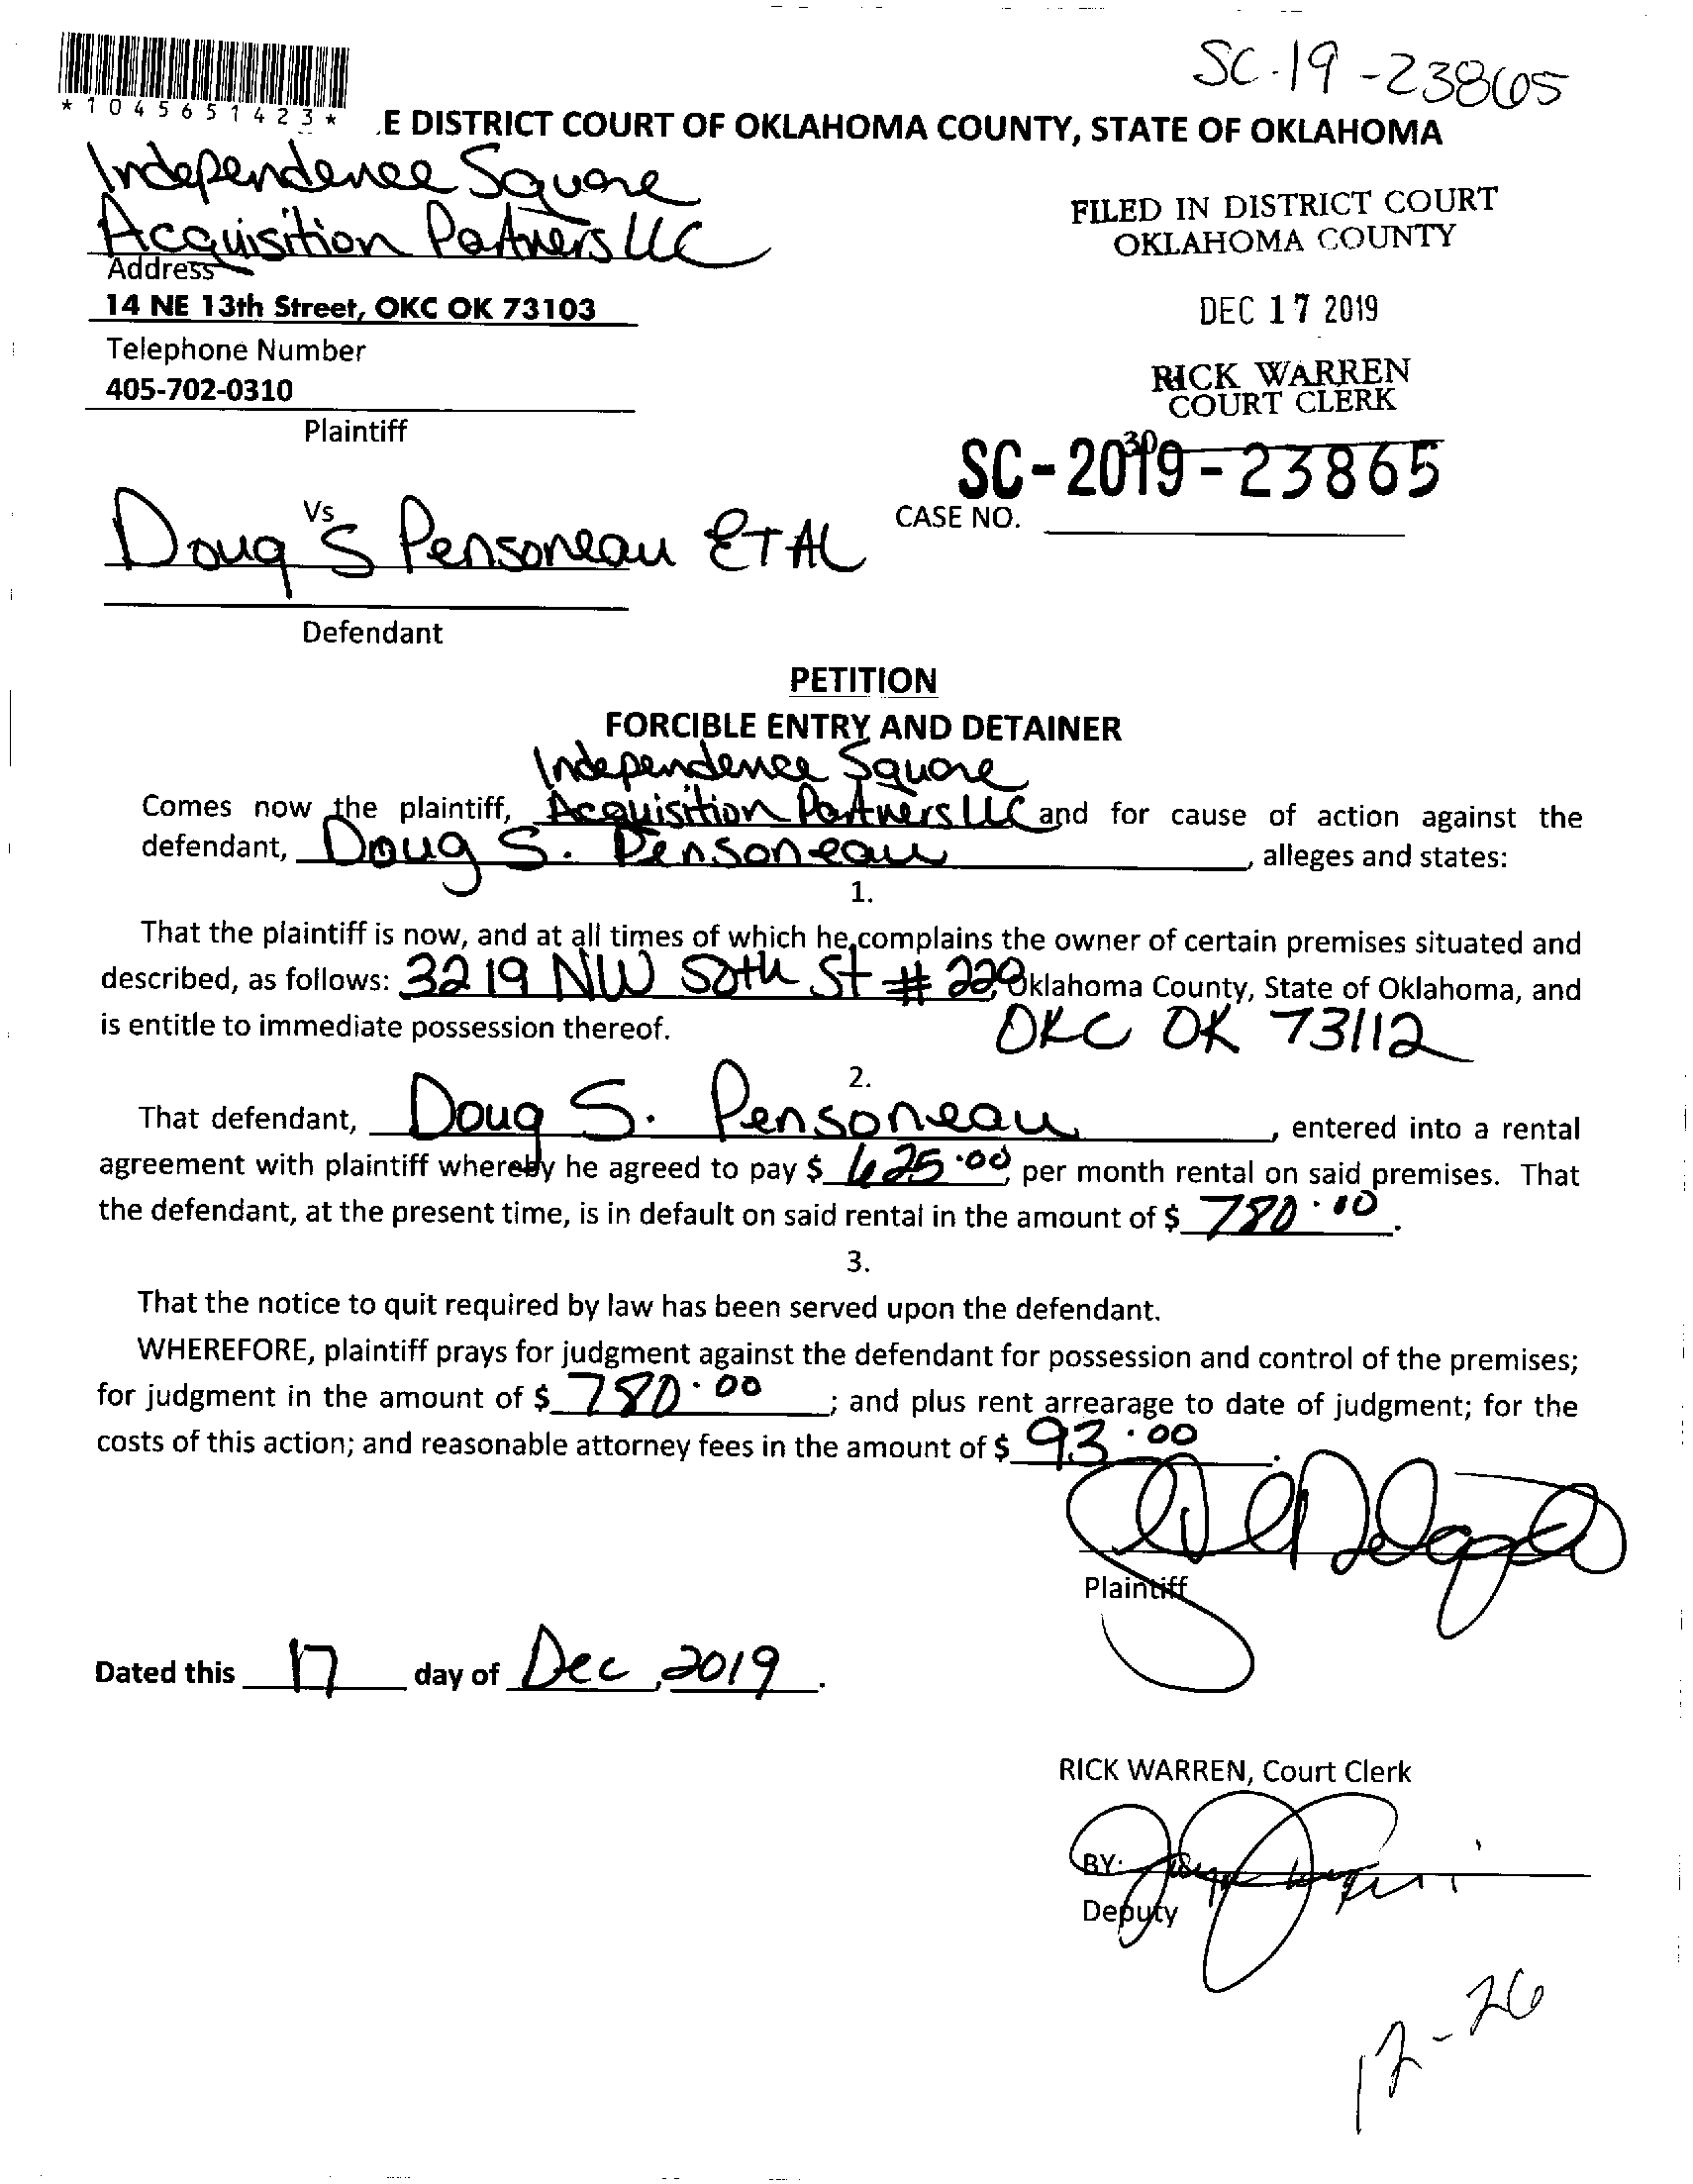 SC-19-23865
*1045651423*
.E DISTRICT COURT OF OKLAHOMA COUNTY, STATE OF OKLAHOMA
Independence Square
Acquisition Partners LLC
Address
14 NE 13th Street, OKC OK 73103
Telephone Number
405-702-0310
Plaintiff
FILED IN DISTRICT COURT
OKLAHOMA COUNTY
DEC 17 2019
RICK WARREN
COURT CLERK
30
SC-2019-23865
CASE NO.
Vs
Doug S Pensoneau ET AL
Defendant
PETITION
FORCIBLE ENTRY AND DETAINER
Independence Square
Comes now the plaintiff, Acquisition Partners LLC and for cause of action against the
defendant, Doug S. Pensoneau, alleges and states:
1.
That the plaintiff is now, and at all times of which he complains the owner of certain premises situated and
described, as follows: 3219 NW 50th St # 220, Oklahoma County, State of Oklahoma, and
is entitle to immediate possession thereof. OKC OK 73112
2.
That defendant, Doug S. Pensoneau, entered into a rental
agreement with plaintiff whereby he agreed to pay $ 625.00, per month rental on said premises. That
the defendant, at the present time, is in default on said rental in the amount of $ 780.00.
3.
That the notice to quit required by law has been served upon the defendant.
WHEREFORE, plaintiff prays for judgment against the defendant for possession and control of the premises;
for judgment in the amount of $ 780.00; and plus rent arrearage to date of judgment; for the
costs of this action; and reasonable attorney fees in the amount of $ 93.00.
Plaintiff
Dated this 17 day of Dec, 2019.
RICK WARREN, Court Clerk
BY:
Deputy
12-26